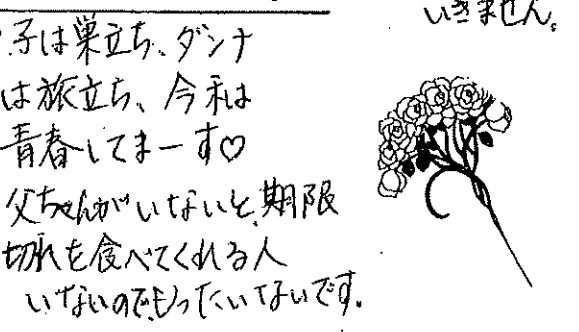 いきません。
子は巣立ち、ダンナ
は旅立ち、今私は
青春してまーす♡
父ちゃんがいないと、期限
切れを食べてくれる人
いないのでもったいないです。